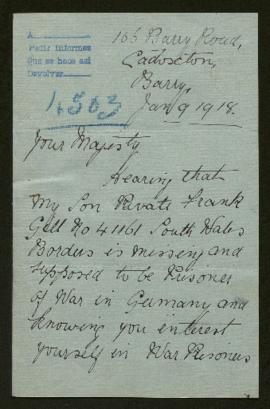 A
Pedir informes
Que se hace así
Devolver
4503
165 Barry Road,
Cadoxton,
Barry,
Jan 9 1918.
Your Majesty
Hearing that
My Son Private Frank
Gell No 41161 South Wales
Borders is missing and
supposed to be Prisoner
of War in Germany and
knowing you interest
yourself in War Prisoners